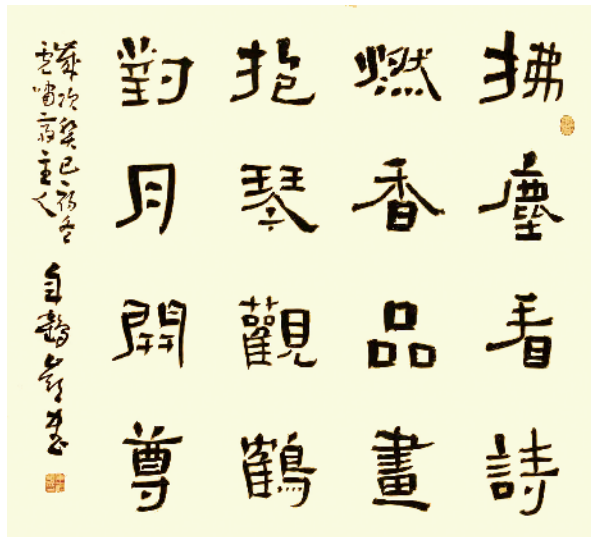 拂塵看詩
燃香品畫
抱琴觀鶴
對月開尊
歲次癸巳初冬
主人
自鶴
書